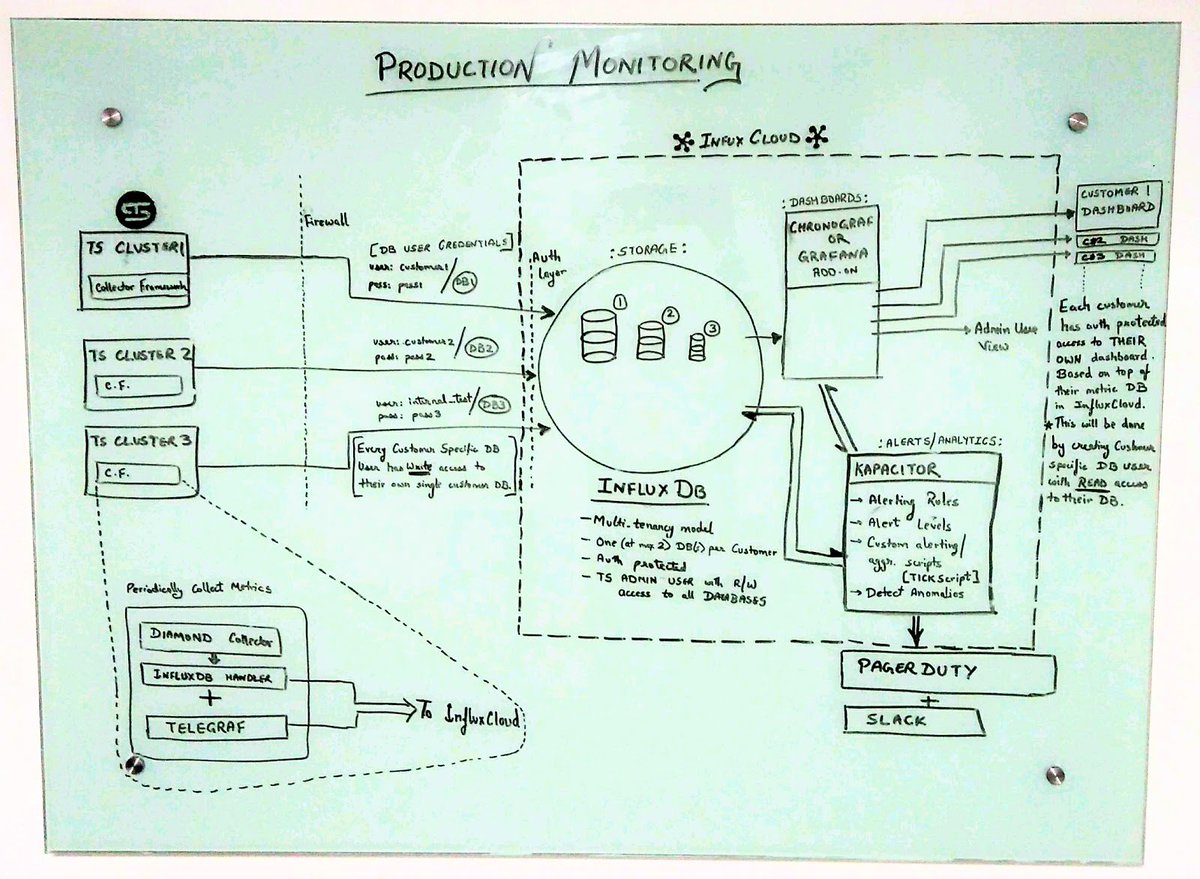 PRODUCTION MONITORING
INFUX CLOUD
TS CLUSTER1
Collector Framework
TS CLUSTER 2
C.F.
TS CLUSTER 3
C.F.
Firewall
[DB USER CREDENTIALS]
user: customer1/
pass: pass1
DB1
user: customer2/
pass: pass2
DB2
user: internal_test/
pass: pass3
DB3
Every Customer Specific DB
User has Write access to
their own single customer DB.
Auth
Layer
:STORAGE:
1
2
3
INFLUX DB
- Multi-tenancy model
- One (at max 2) DB(s) per Customer
- Auth protected
- TS ADMIN USER with R/W
access to all DATABASES
:DASHBOARDS:
CHRONOGRAF
OR
GRAFANA
ADD-ON
Admin User
View
:ALERTS/ANALYTICS:
KAPACITOR
→ Alerting Rules
→ Alert Levels
→ Custom alerting/
aggr. scripts
[TICKScript]
→ Detect Anomalies
PAGER DUTY
+
SLACK
CUSTOMER 1
DASHBOARD
DASH
DASH
Each customer
has auth protected
access to THEIR
OWN dashboard.
Based on top of
their metric DB
in InfluxCloud.
* This will be done
by creating Customer
specific DB user
with READ access
to their DB.
Periodically Collect Metrics
DIAMOND Collector
INFLUXDB HANDLER
+
TELEGRAF
To InfluxCloud